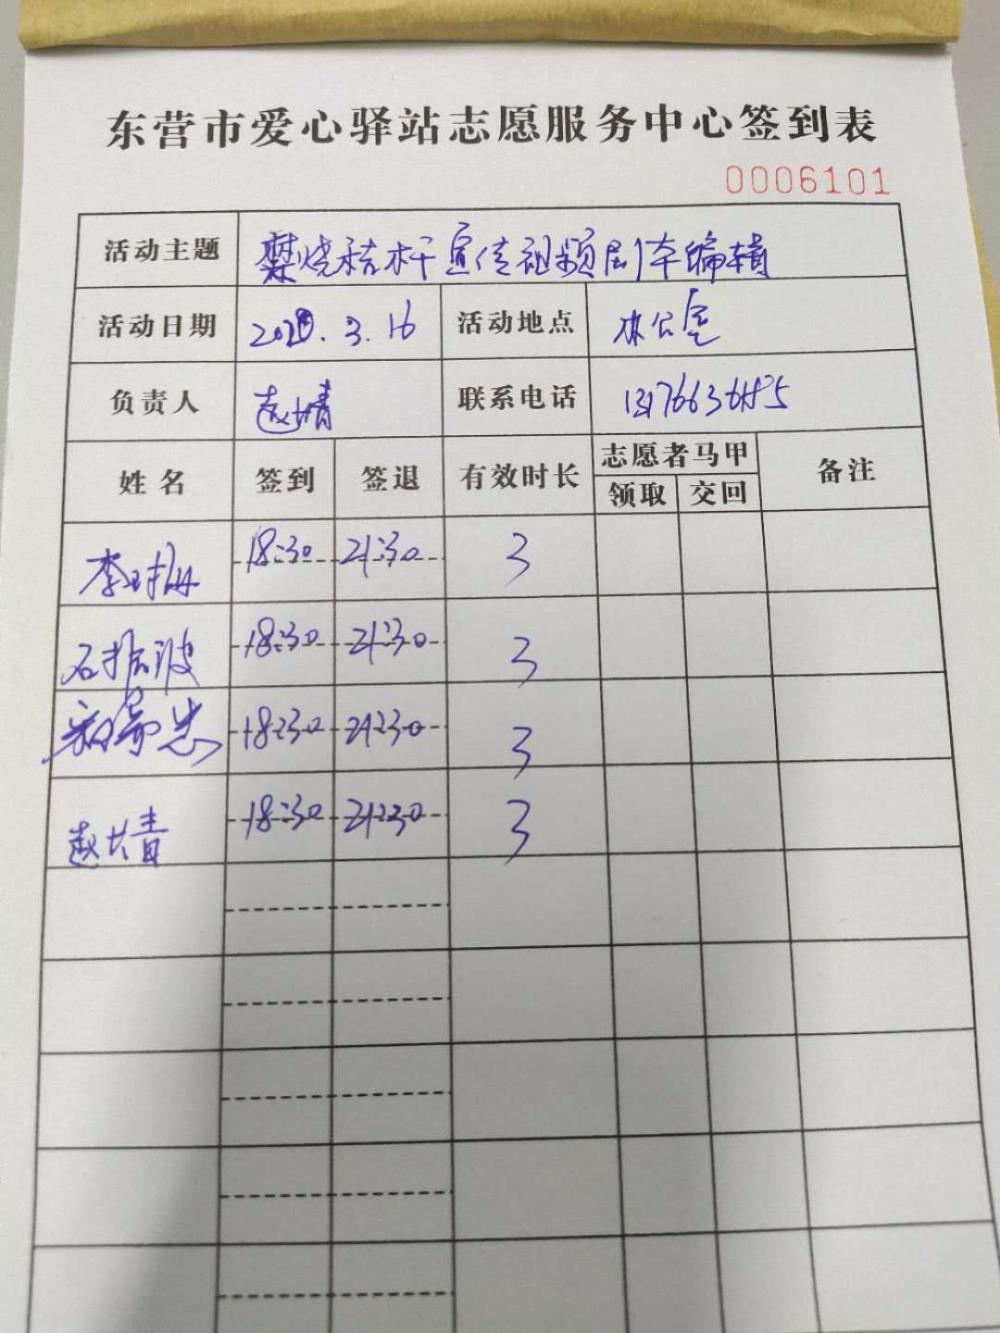 东营市爱心驿站志愿服务中心签到表
0006101
活动主题 焚烧秸杆宣传视频剧本编辑
活动日期 2020.3.16 活动地点 办公室
负责人 赵大青 联系电话
姓名 签到 签退 有效时长 志愿者马甲 备注
领取 交回
18:30 21:30 3
石振波 18:30 21:30 3
18:30 21:30 3
赵大青 18:30 21:30 3